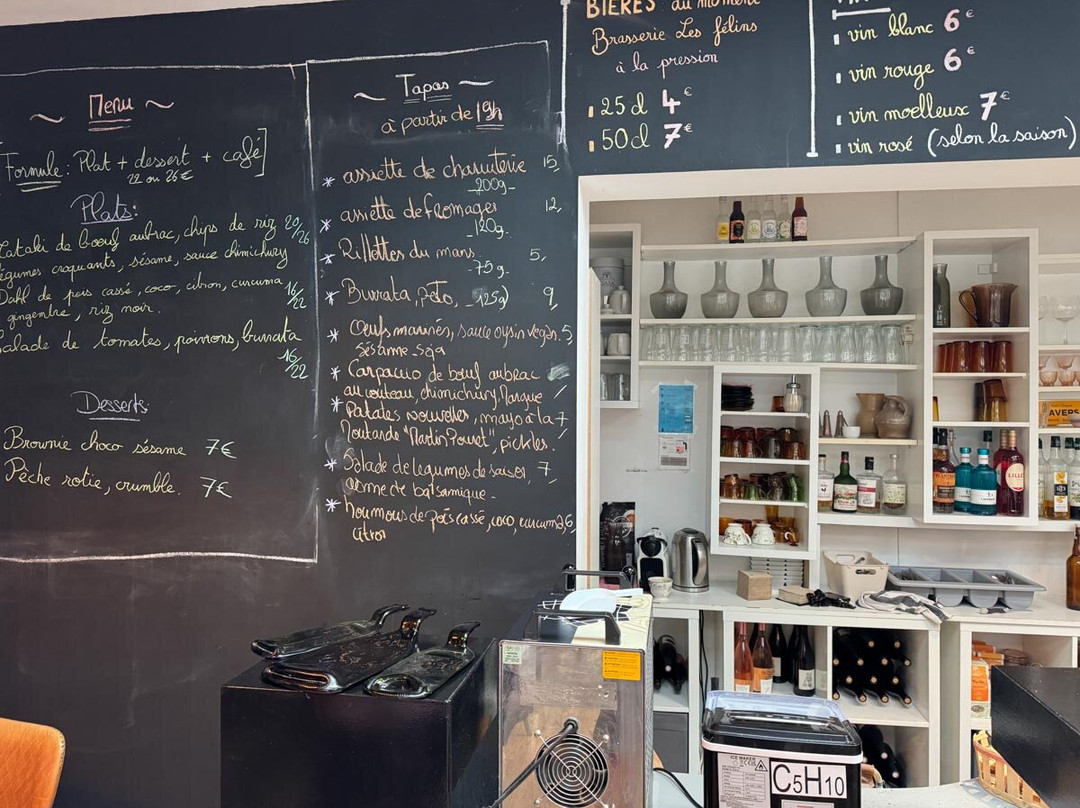 ~ Menu ~
[Formule: Plat + dessert + café]
22 ou 26€
Plats:
Tataki de bœuf aubrac, chips de riz 20/26
légumes croquants, sésame, sauce chimichury
Dahl de pois cassé, coco, citron, curcuma 16/22
gingembre, riz noir.
Salade de tomates, poivrons, burrata
16/22
Desserts
Brownie choco sésame 7€
Pêche rotie, crumble. 7€
~ Tapas ~
à partir de 19h
* assiette de charcuterie 15,
-200g-
* assiette de fromages 12,
-120g-
* Rillettes du mans 5,
-75g-
* Burrata, pesto, -125g) 9,
* Œufs marinés, sauce oysin vegan. 5
sésame-soja
* Carpaccio de bœuf aubrac
au couteau, chimichury, mangue
* Patates nouvelles, mayo à la 7
Moutarde "Martin Pouret", pickles.
* Salade de legumes de saison, 7,
creme de balsamique-
* houmous de pois cassé, coco, curcuma, 6,
citron
BIERES du moment
Brasserie Les félins
à la pression
25 cl 4€
50cl 7€
vin blanc 6€
vin rouge 6€
vin moelleux 7€
vin rosé (selon la saison)
LILLET
AVERS
ICE MAKER
C5H10